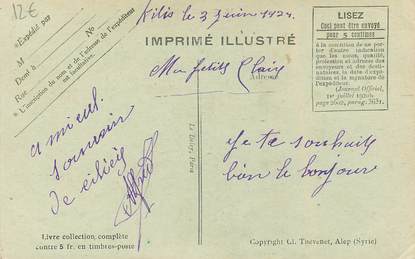 12€
Kilis le 3 Juin 1921.
IMPRIMÉ ILLUSTRÉ
Mon petit Clair
Adresse
*Expédié par
N°
M
Dent à
Rue
* L'inscription du nom et de l'adresse de l'expéditeur
est facultative.
LISEZ
Ceci peut être envoyé
pour 5 centimes
à la condition de ne por-
ter d'autre indication
que les nom, qualité,
profession et adresse des
envoyeurs et des desti-
nataires, la date d'expé-
dition et la signature de
l'expéditeur.
(Journal Officiel,
1er juillet 1920,
page 2602, parag. 3631.
amical
souvenir
de cilicie
je te souhaite
bien le bonjour
Le Deley, Paris
Livre collection, complète
contre 5 fr. en timbres-poste
Copyright G. Thévenet, Alep (Syrie)